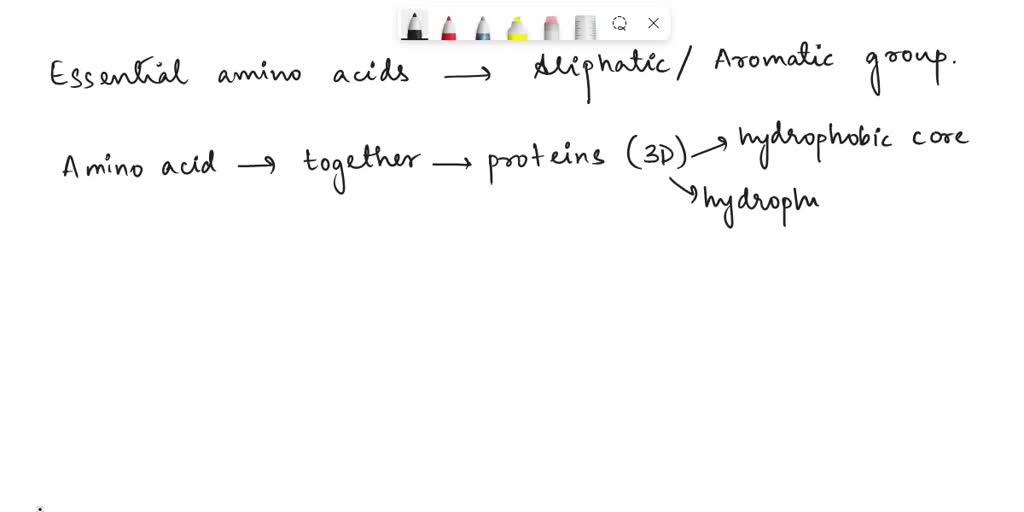 Essential amino acids → Aliphatic / Aromatic group.
Amino acid → together → proteins (3D) → hydrophobic core
↘ hydroph